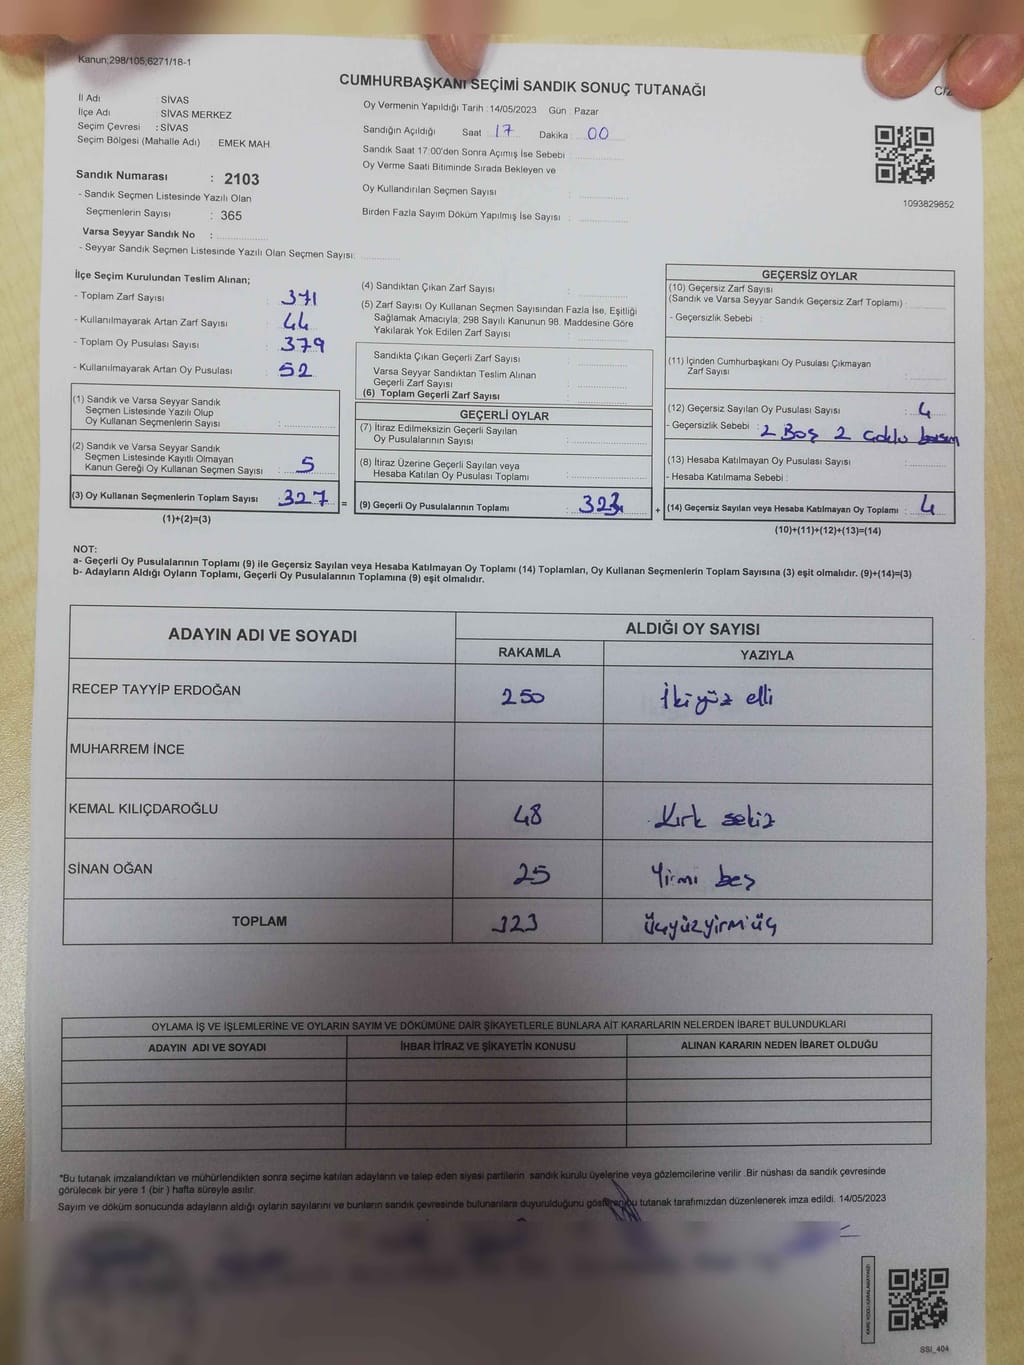 Kanun;298/105;6271/18-1
CUMHURBAŞKANI SEÇİMİ SANDIK SONUÇ TUTANAĞI
İl Adı : SİVAS
İlçe Adı : SİVAS MERKEZ
Seçim Çevresi : SİVAS
Seçim Bölgesi (Mahalle Adı) : EMEK MAH.
Sandık Numarası : 2103
- Sandık Seçmen Listesinde Yazılı Olan
Seçmenlerin Sayısı : 365
Varsa Seyyar Sandık No :
- Seyyar Sandık Seçmen Listesinde Yazılı Olan Seçmen Sayısı:
Oy Vermenin Yapıldığı Tarih : 14/05/2023 Gün : Pazar
Sandığın Açıldığı Saat : 17 Dakika : 00
Sandık Saat 17:00'den Sonra Açımış İse Sebebi :
Oy Verme Saati Bitiminde Sırada Bekleyen ve
Oy Kullandırılan Seçmen Sayısı :
Birden Fazla Sayım Döküm Yapılmış İse Sayısı :
1093829852
İlçe Seçim Kurulundan Teslim Alınan;
- Toplam Zarf Sayısı : 371
- Kullanılmayarak Artan Zarf Sayısı : 44
- Toplam Oy Pusulası Sayısı : 379
- Kullanılmayarak Artan Oy Pusulası : 52
(1) Sandık ve Varsa Seyyar Sandık
Seçmen Listesinde Yazılı Olup
Oy Kullanan Seçmenlerin Sayısı :
(2) Sandık ve Varsa Seyyar Sandık
Seçmen Listesinde Kayıtlı Olmayan
Kanun Gereği Oy Kullanan Seçmen Sayısı : 5
(3) Oy Kullanan Seçmenlerin Toplam Sayısı : 327 =
(1)+(2)=(3)
(4) Sandıktan Çıkan Zarf Sayısı :
(5) Zarf Sayısı Oy Kullanan Seçmen Sayısından Fazla İse, Eşitliği
Sağlamak Amacıyla; 298 Sayılı Kanunun 98. Maddesine Göre
Yakılarak Yok Edilen Zarf Sayısı :
Sandıkta Çıkan Geçerli Zarf Sayısı :
Varsa Seyyar Sandıktan Teslim Alınan
Geçerli Zarf Sayısı :
(6) Toplam Geçerli Zarf Sayısı :
GEÇERLİ OYLAR
(7) İtiraz Edilmeksizin Geçerli Sayılan
Oy Pusulalarının Sayısı :
(8) İtiraz Üzerine Geçerli Sayılan veya
Hesaba Katılan Oy Pusulası Toplamı :
(9) Geçerli Oy Pusulalarının Toplamı : 323 +
GEÇERSİZ OYLAR
(10) Geçersiz Zarf Sayısı
(Sandık ve Varsa Seyyar Sandık Geçersiz Zarf Toplamı) :
- Geçersizlik Sebebi :
(11) İçinden Cumhurbaşkanı Oy Pusulası Çıkmayan
Zarf Sayısı :
(12) Geçersiz Sayılan Oy Pusulası Sayısı : 4
- Geçersizlik Sebebi : 2 Boş 2 çoklu basım
(13) Hesaba Katılmayan Oy Pusulası Sayısı :
- Hesaba Katılmama Sebebi :
(14) Geçersiz Sayılan veya Hesaba Katılmayan Oy Toplamı : 4
(10)+(11)+(12)+(13)=(14)
NOT:
a- Geçerli Oy Pusulalarının Toplamı (9) ile Geçersiz Sayılan veya Hesaba Katılmayan Oy Toplamı (14) Toplamları, Oy Kullanan Seçmenlerin Toplam Sayısına (3) eşit olmalıdır. (9)+(14)=(3)
b- Adayların Aldığı Oyların Toplamı, Geçerli Oy Pusulalarının Toplamına (9) eşit olmalıdır.
ADAYIN ADI VE SOYADI ALDIĞI OY SAYISI
RAKAMLA YAZIYLA
RECEP TAYYİP ERDOĞAN 250 İkiyüz elli
MUHARREM İNCE
KEMAL KILIÇDAROĞLU 48 Kırk sekiz
SİNAN OĞAN 25 Yirmi beş
TOPLAM 323 üçyüzyirmiüç
OYLAMA İŞ VE İŞLEMLERİNE VE OYLARIN SAYIM VE DÖKÜMÜNE DAİR ŞİKAYETLERLE BUNLARA AİT KARARLARIN NELERDEN İBARET BULUNDUKLARI
ADAYIN ADI VE SOYADI İHBAR İTİRAZ VE ŞİKAYETİN KONUSU ALINAN KARARIN NEDEN İBARET OLDUĞU
*Bu tutanak imzalandıktan ve mühürlendikten sonra seçime katılan adayların ve talep eden siyasi partilerin sandık kurulu üyelerine veya gözlemcilerine verilir .Bir nüshası da sandık çevresinde
görülecek bir yere 1 (bir ) hafta süreyle asılır.
Sayım ve döküm sonucunda adayların aldığı oyların sayılarını ve bunların sandık çevresinde bulunanlara duyurulduğunu gösteren bu tutanak tarafımızdan düzenlenerek imza edildi. 14/05/2023
SSI_404